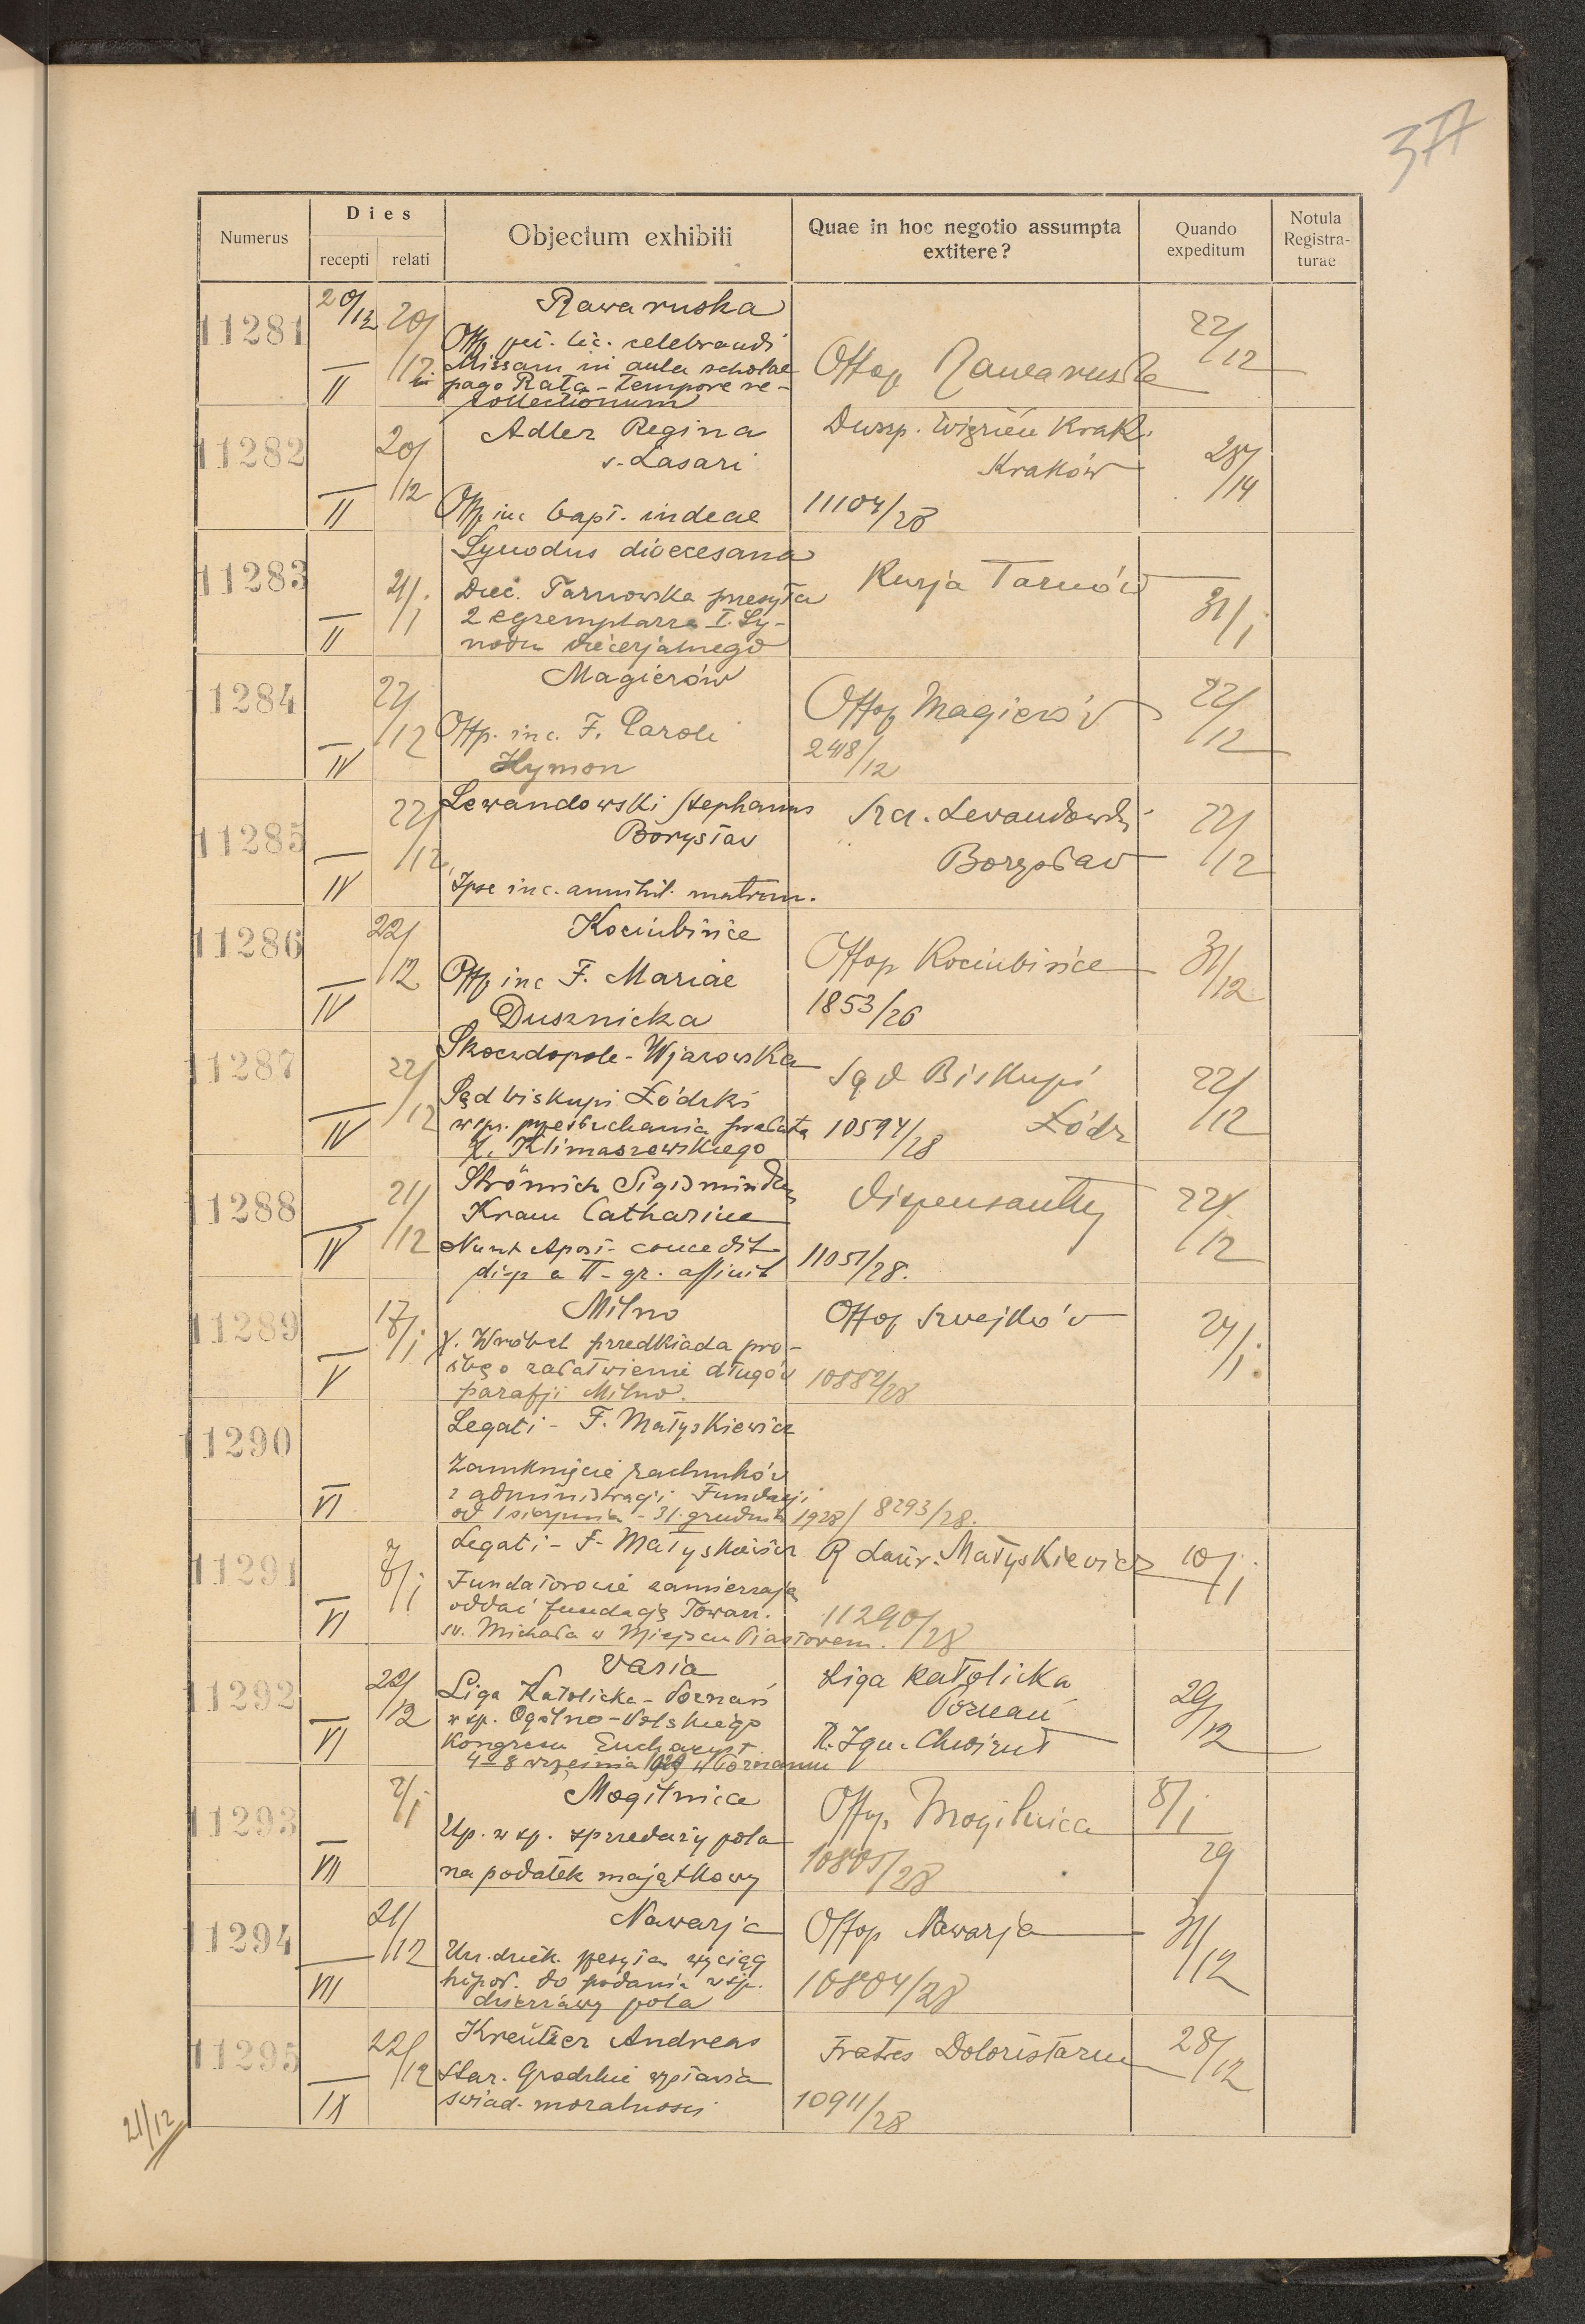 377
Numerus
Dies
recepti
relati
Objectum exhibiti
Quae in hoc negotio assumpta
extitere?
Quando
expeditum
Notula
Registra-
turae
11281
20/12
20/12
II
Rawa ruska
Offp pet. lic. celebrandi
Missam in aula scholae
in pago Rata - tempore re-
collectionum
Offop Rawa ruska
22/12
11282
20/12
II
Adler Regina
v. Lasari
Offp inc bapt. iudeae
Kraków
11104/28
11283
21/1
II
Synodus dioecesana
Diec. Tarnowska przesyła
2 egzemplarze I. Sy-
nodu diecezjalnego
Kurja Tarnów
31/1
11284
22/12
IV
Magierów
Offp. inc. F. Caroli
Hymon
Offop Magierów
2418/12
22/12
11285
22/12
IV
Lewandowski Stephanus
Borysław
Ipse inc. annihil. matrim.
Lewandowski
Borysław
22/12
11286
22/12
IV
Kociubińce
Offp inc F. Mariae
Dusznicka
Offop Kociubińce
1853/26
31/12
11287
22/12
IV
Skoczdopole - Wjarowska
Sąd biskupi Łódzki
w spr. przesłuchania prałata
X. Klimaszewskiego
Sąd Biskupi
Łódz
10594/28
22/12
11288
21/12
IV
Strömich Sigismundus
Kram Catharina
Nunt. Apost. concedit
disp a II gr. affinit
Dispensantur
11051/28.
22/12
11289
17/1
V
Milno
X. Wróbel przedkłada pro-
śbę o załatwienie długów
parafji Milno.
10882/28
24/1
11290
VI
Legati - F. Małyskiewicz
Zamknięcie rachunków
z administracji Fundacji
od 1 sierpnia - 31 grudnia 1928/ 8293/28.
11291
8/1
VI
Legati - F. Małyskiewicz
Fundatorowie zamierzają
oddać fundację Towarz.
św. Michała w Miejscu Piastowem.
R Laur. Małyskiewicz
11290/28
10/1
11292
22/12
VI
Varia
Liga Katolicka - Poznań
w sp. Ogólno-Polskiego
Kongresu Eucharyst.
4-8 września 1929 w Poznaniu
Liga Katolicka
Poznań
29/12
11293
7/1
VII
Mogilnica
Up. w sp. sprzedaży pola
na podatek majątkowy
Offop Mogilnica
10805/28
8/1
29
11294
21/12
VII
Nawarja
Urz. dziek. przesyła wyciąg
hipot. do podania w sp.
dzierżawy pola
Offop Nawarja
10804/28
31/12
11295
22/12
IX
Kreützer Andreas
Star. Grodzkie wystawia
świad. moralności
Fratres Doloristarum
10911/28
28/12
21/12